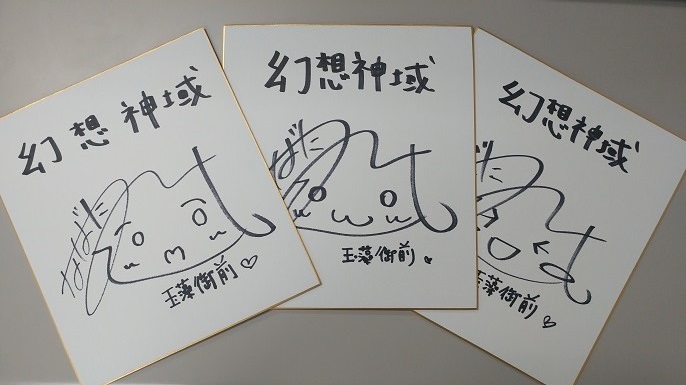 幻想神域
ななひ
玉藻御前♡
幻想神域
玉藻御前
幻想神域
玉藻御前